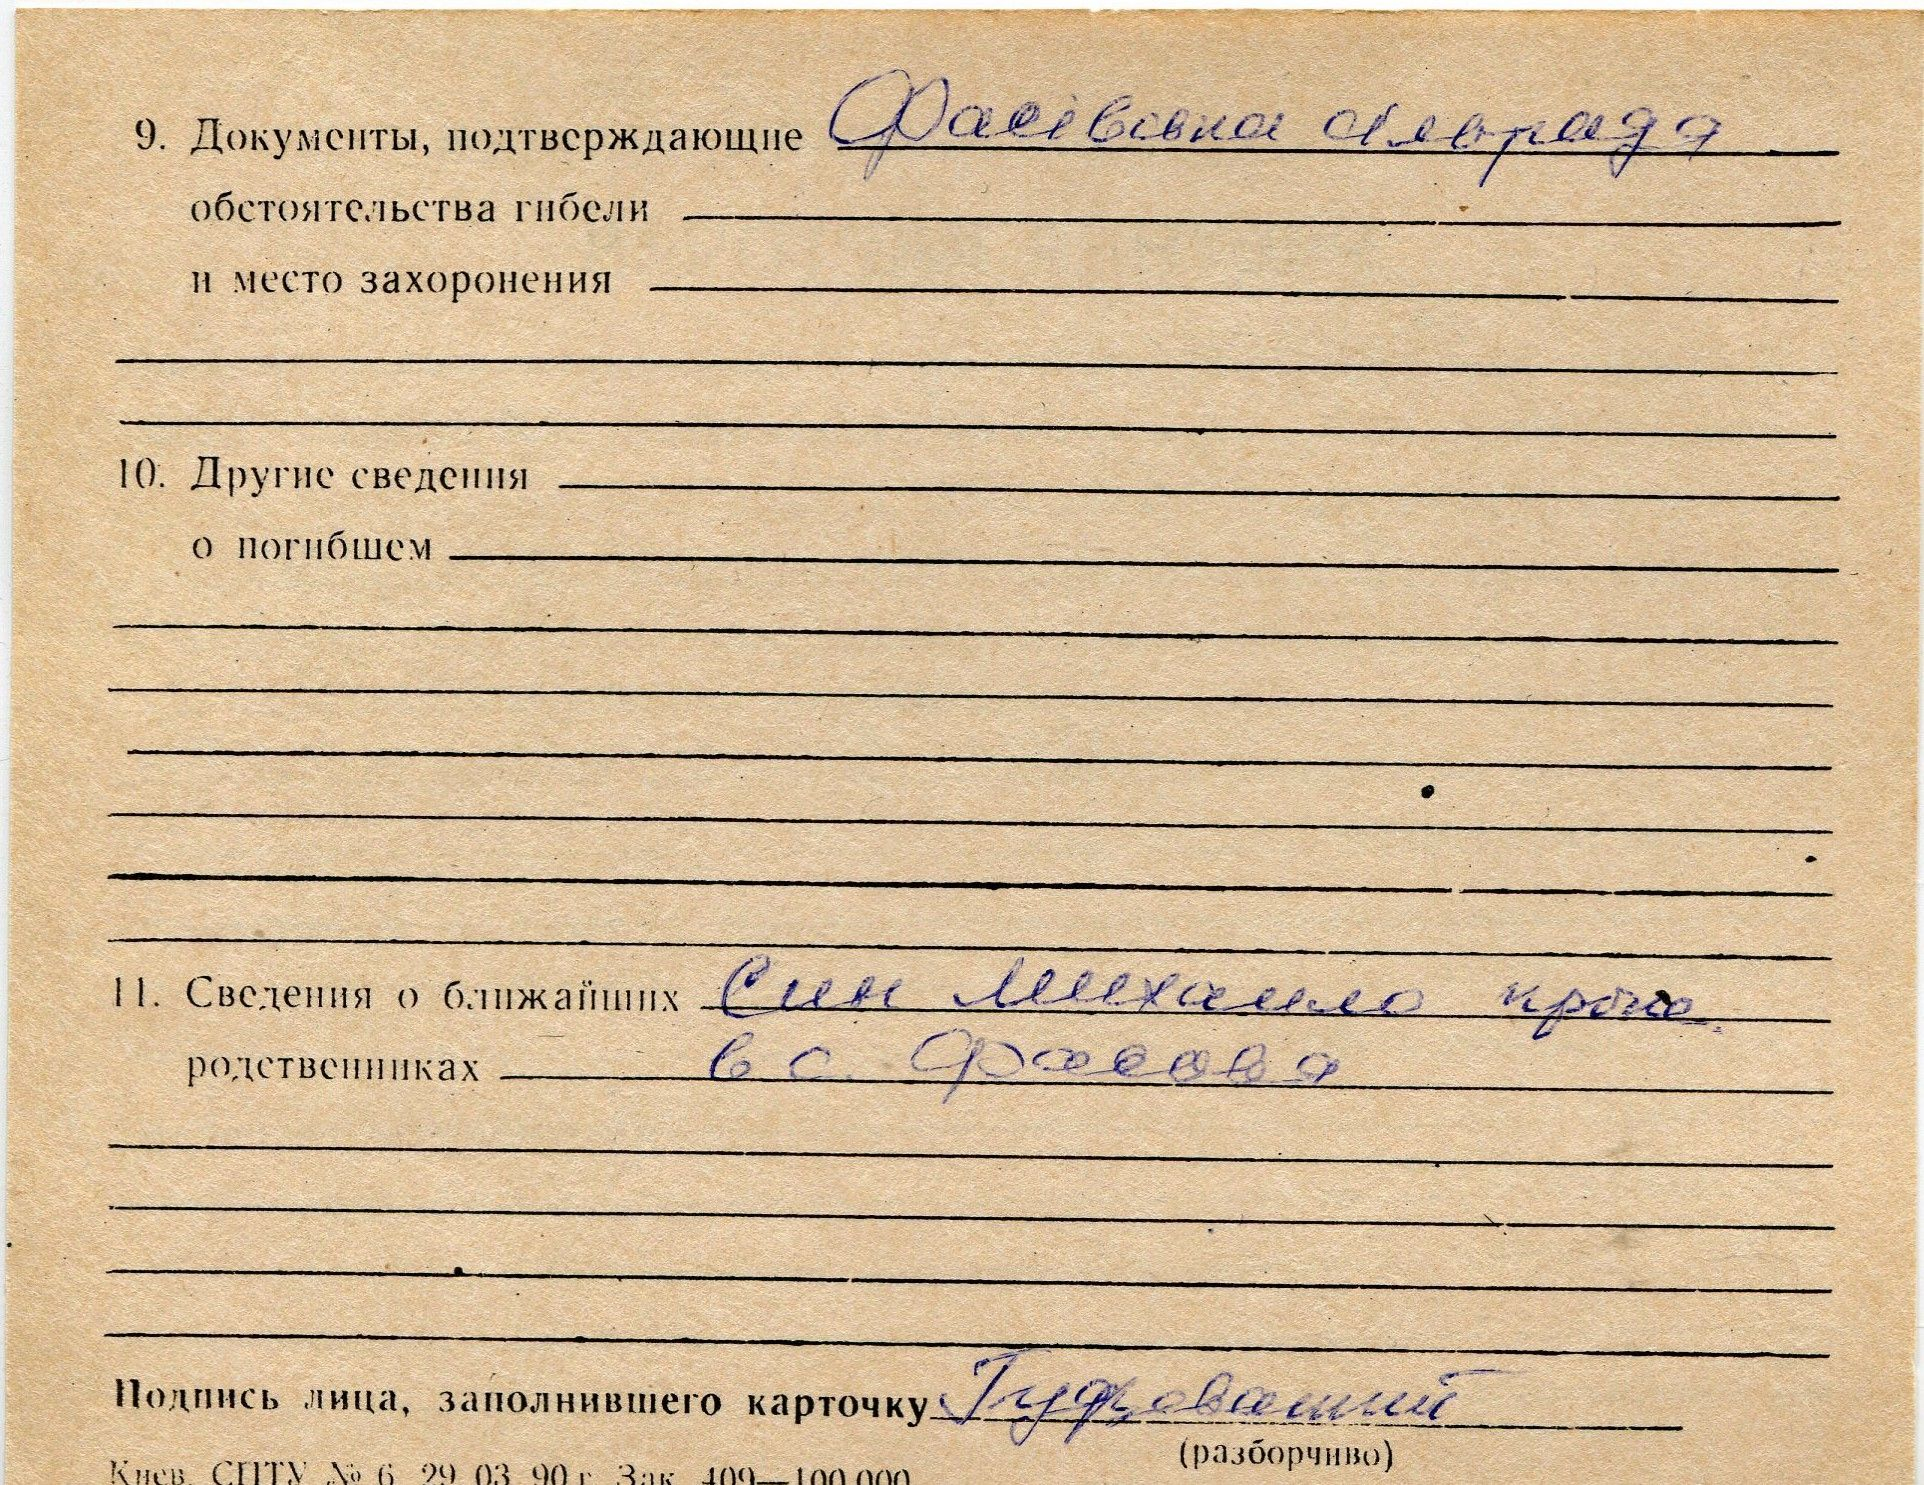 9. Документы, подтверждающие Фасівська сільрада
обстоятельства гибели
и место захоронения
10. Другие сведения
о погибшем
11. Сведения о ближайших Син Михайло
родственниках в с. Фасова
Подпись лица, заполнившего карточку
(разборчиво)
Киев. СПТУ № 6. 29. 03. 90 г. Зак. 409—100.000